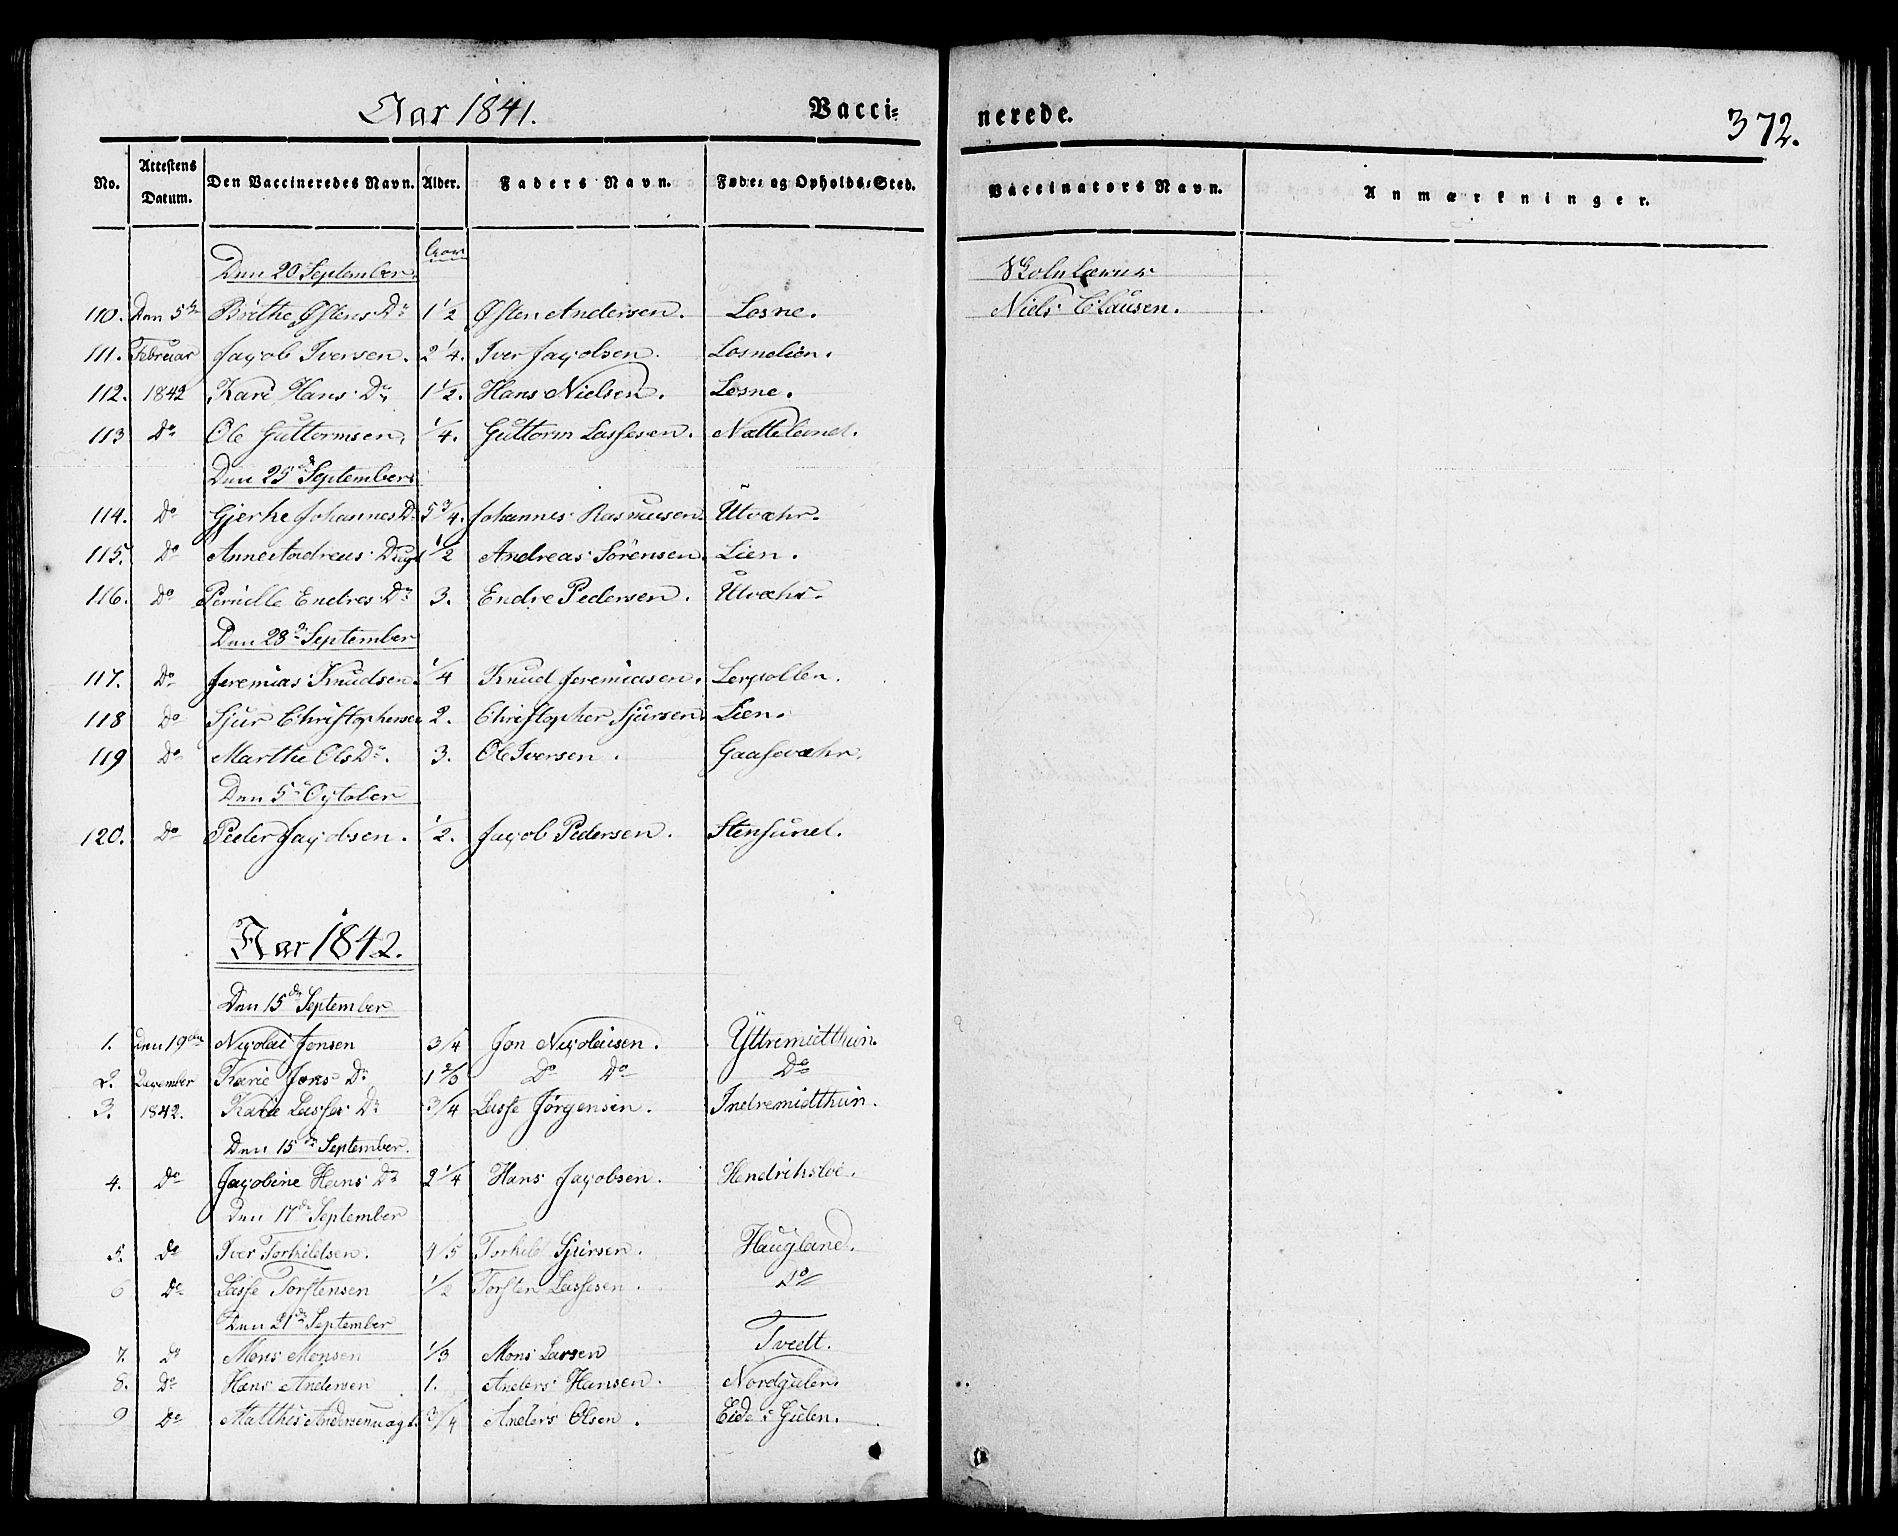 Aar 1841. Vacci= nerede. 372.
No. Attestens Datum. Den Vaccineredes Navn. Alder. Faders Navn. Føde= og Opholds=Sted. Vaccinators Navn. Anmærkninger.
Aar
Den 20 September Skolelærer
110. Den 5te Brithe Østens Dr 1 1/2 Østen Andersen. Losne. Niels Clausen.
111. Februar Jacob Iversen. 2 1/4. Iver Jacobsen. Losnelien.
112. 1842 Kari Hans Dr 1 1/2. Hans Nielsen. Losne.
113 Do Ole Guttormsen, 1/4. Guttorm Lassesen. Nattelund.
Den 25de September
114. Do Gjerhe Johannes D. 5 3/4. Johannes Rasmusen. Utvæhr.
115. Do Anne Andreas Dagt 1/2 Andreas Sörensen. Lien.
116. Do Pernille Endres Dr 3. Endre Pedersen. Utvæhr.
Den 28de September
117. Do Jeremias Knudsen. 1/4 Knud Jeremiasen. Lerpollen.
118 Do Sjur Christophersen 2. Christopher Sjursen. Lien.
119 Do Marthe Ols Dr. 3. Ole Iversen. Gaasevæhr.
Den 5te October
120. Do Peder Jacobsen. 1/2. Jacob Pedersen. Stensund.
Aar 1842.
Den 15de September
1. Den 19de Nicolai Jonsen 3/4 Jon Nicolaisen. Yttremidthun.
2. December Karie Jons Dr 1 2/3 Do Do Do
3. 1842. Kari Lasses Dr 3/4 Lasse Jörgensen. Indremidthun.
Den 15de September.
4. Do Jacobine Hans Dr 2 1/4 Hans Jacobsen. Hendriksboe.
Den 17de September
5. Do Iver Torkildsen. 4/5 Torkild Sjursen. Haugland.
6 Do Lasse Torstensen 1/2 Torsten Lassesen. Do
Den 21de September
7. Do Mons Monsen 1/3 Mons Larsen Tvedt.
8. Do Hans Andersen 1. Anders Hansen. Nordgulen
9 Do Matthis Andersen 3/4 Anders Olsen. Eide i Gulen.